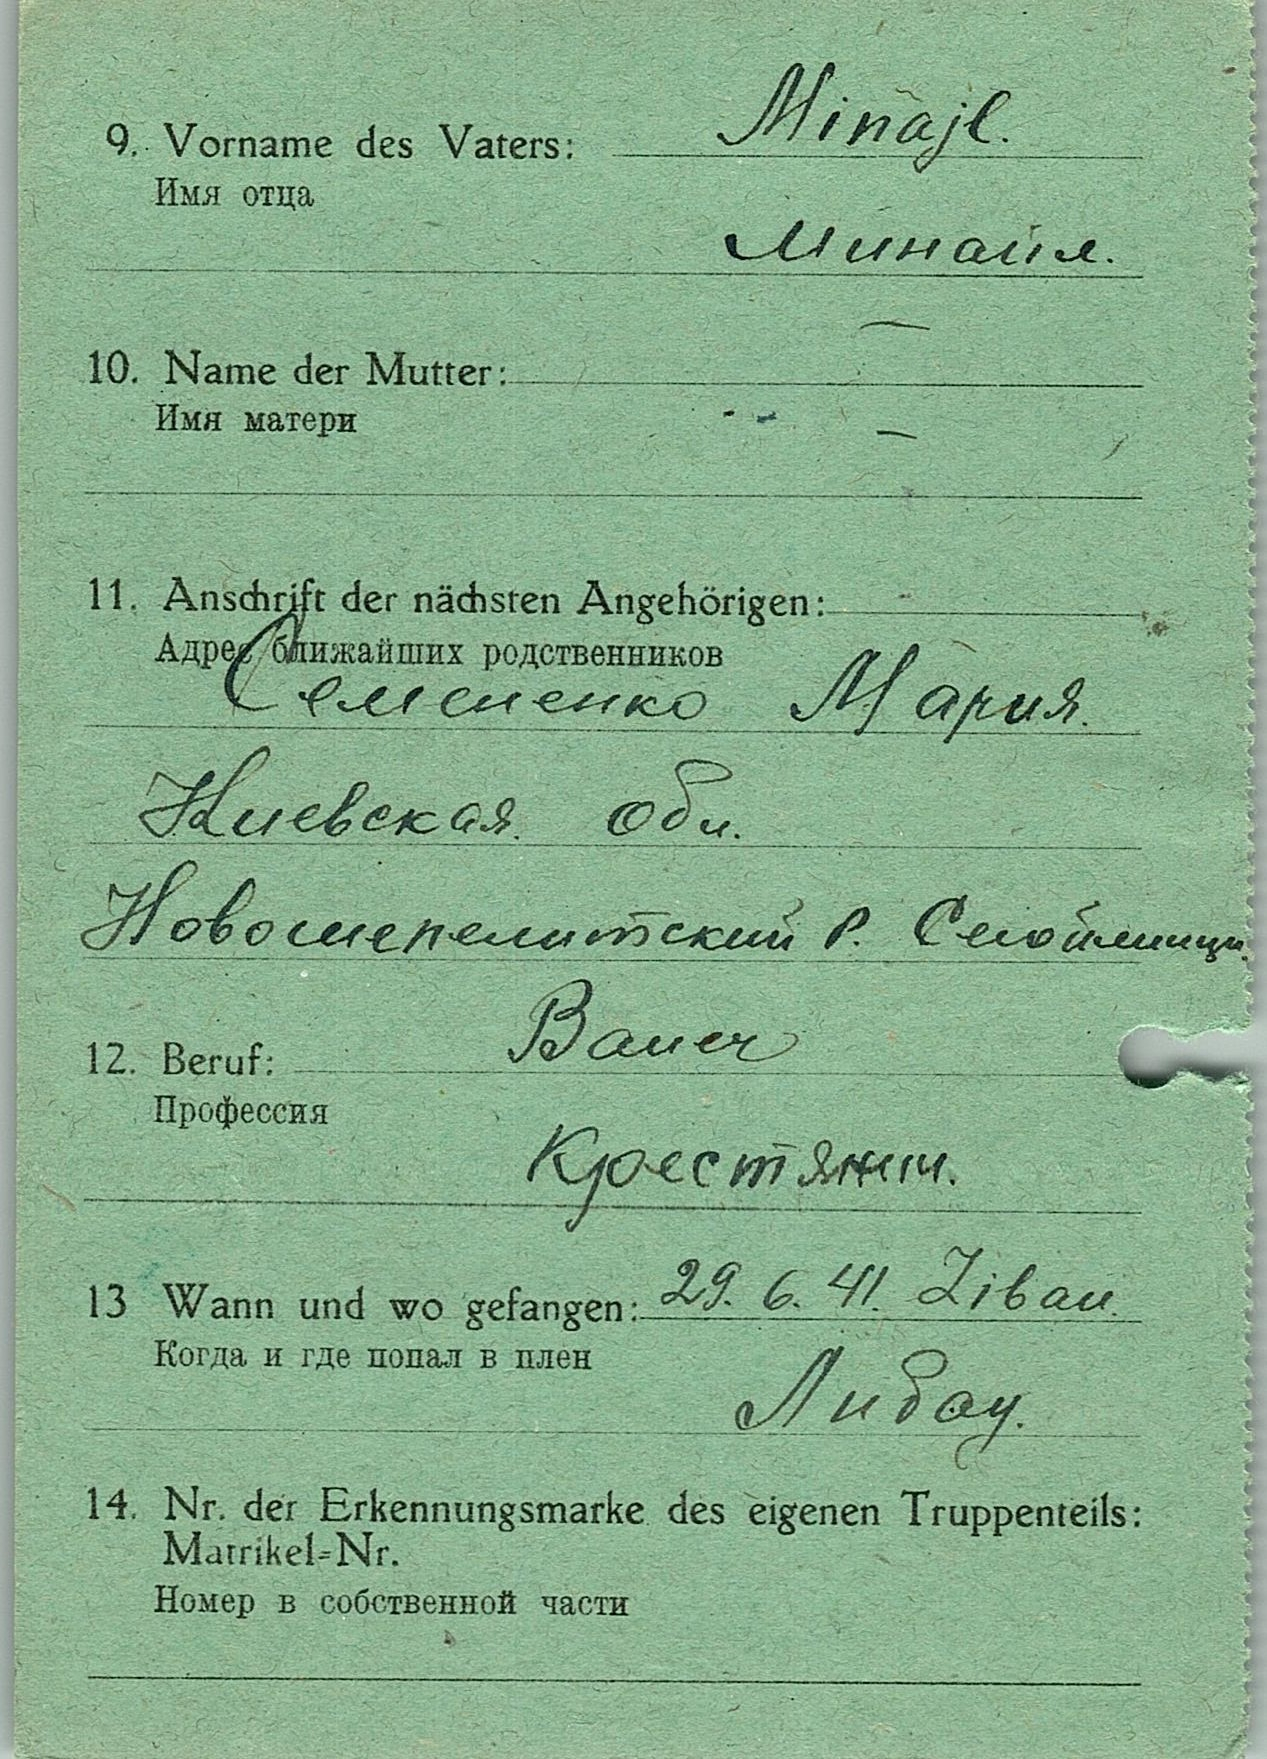 9. Vorname des Vaters: Minajl.
Имя отца
Минаил.
10. Name der Mutter: —
Имя матери
—
11. Anschrift der nächsten Angehörigen:
Адрес ближайших родственников
Семененко Мария.
Киевская. обл.
Новошепелитский р.
12. Beruf: Bauer
Профессия
Крестянин.
13 Wann und wo gefangen: 29. 6. 41. Libau.
Когда и где попал в плен
Либау.
14. Nr. der Erkennungsmarke des eigenen Truppenteils:
Matrikel-Nr.
Номер в собственной части